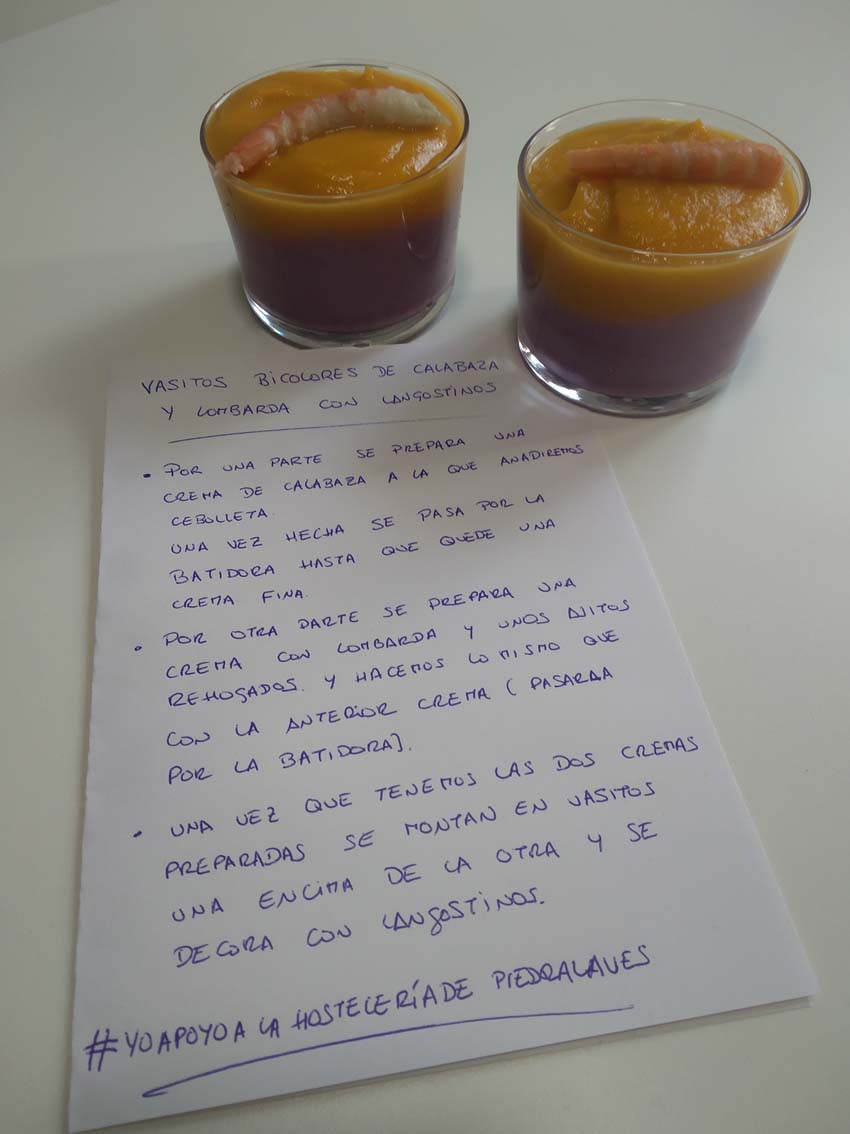 VASITOS BICOLORES DE CALABAZA
Y LOMBARDA CON LANGOSTINOS
• POR UNA PARTE SE PREPARA UNA
CREMA DE CALABAZA A LA QUE AÑADIREMOS
CEBOLLETA.
UNA VEZ HECHA SE PASA POR LA
BATIDORA HASTA QUE QUEDE UNA
CREMA FINA.
• POR OTRA PARTE SE PREPARA UNA
CREMA CON LOMBARDA Y UNOS AJITOS
REHOGADOS. Y HACEMOS LO MISMO QUE
CON LA ANTERIOR CREMA ( PASARLA
POR LA BATIDORA).
• UNA VEZ QUE TENEMOS LAS DOS CREMAS
PREPARADAS SE MONTAN EN VASITOS
UNA ENCIMA DE LA OTRA Y SE
DECORA CON LANGOSTINOS.
#YOAPOYOA LA HOSTELERÍADE PIEDRALAVES